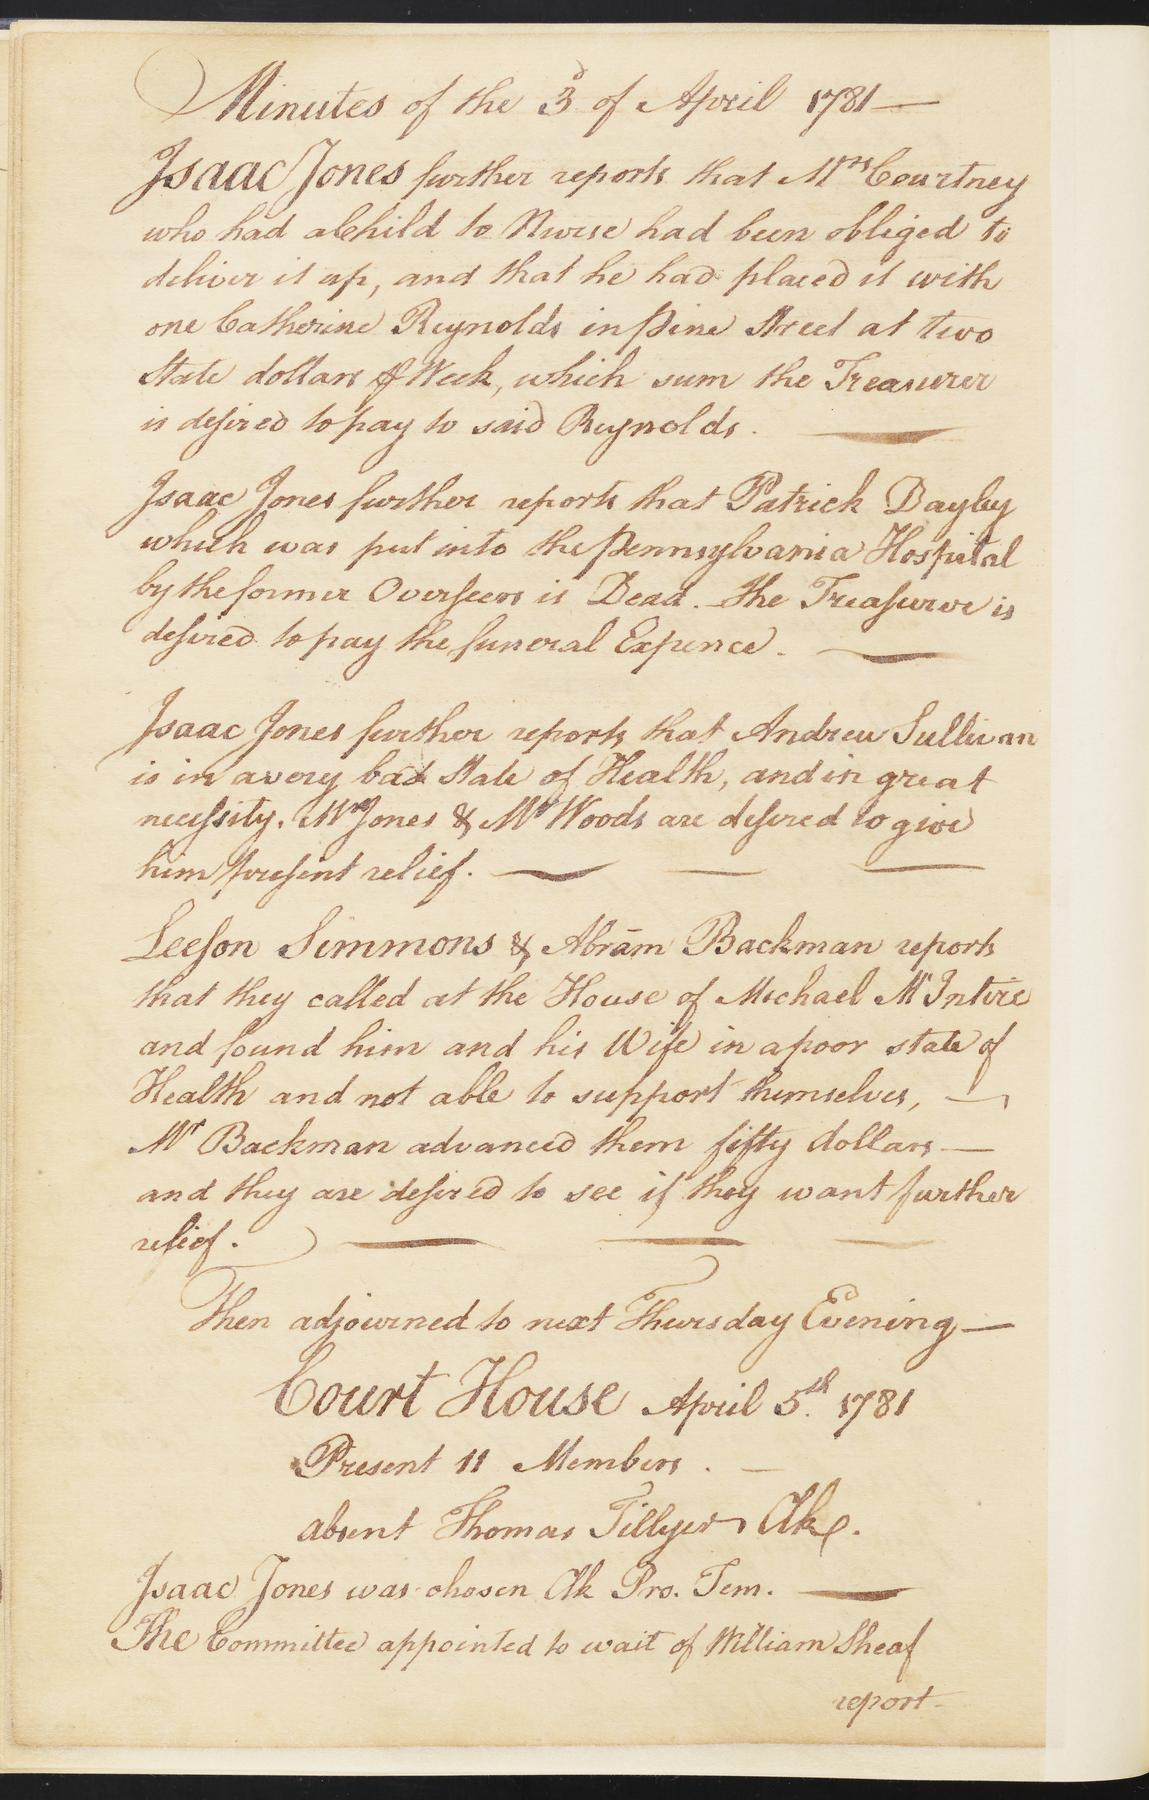 Minutes of the 3d of April 1781 —
Isaac Jones further reports that Mrs Courtney
who had a Child to Nurse had been obliged to
deliver it up, and that he had placed it with
one Catherine Reynolds in Pine Street at two
State dollars ⅌ Week, which sum the Treasurer
is desired to pay to said Reynolds. —
Isaac Jones further reports that Patrick Dayley
which was put into the Pennsylvania Hospital
by the former Overseers is Dead. The Treasurer is
desired to pay the funeral Expence. —
Isaac Jones further reports that Andrew Sullivan
is in a very bad State of Health, and in great
necessity. Mr Jones & Mr Woods are desired to give
him present relief. — — —
Leeson Simmons & Abram Backman reports
that they called at the House of Michael McIntire
and found him and his Wife in a poor state of
Health and not able to support themselves, —
Mr Backman advanced them fifty dollars —
and they are desired to see if they want further
relief. — — —
Then adjourned to next Thursday Evening —
Court House April 5th. 1781
Present 11 Members. —
absent Thomas Tillyer Clk.
Isaac Jones was chosen Clk Pro. Tem. —
The Committee appointed to wait of William Sheaf
report